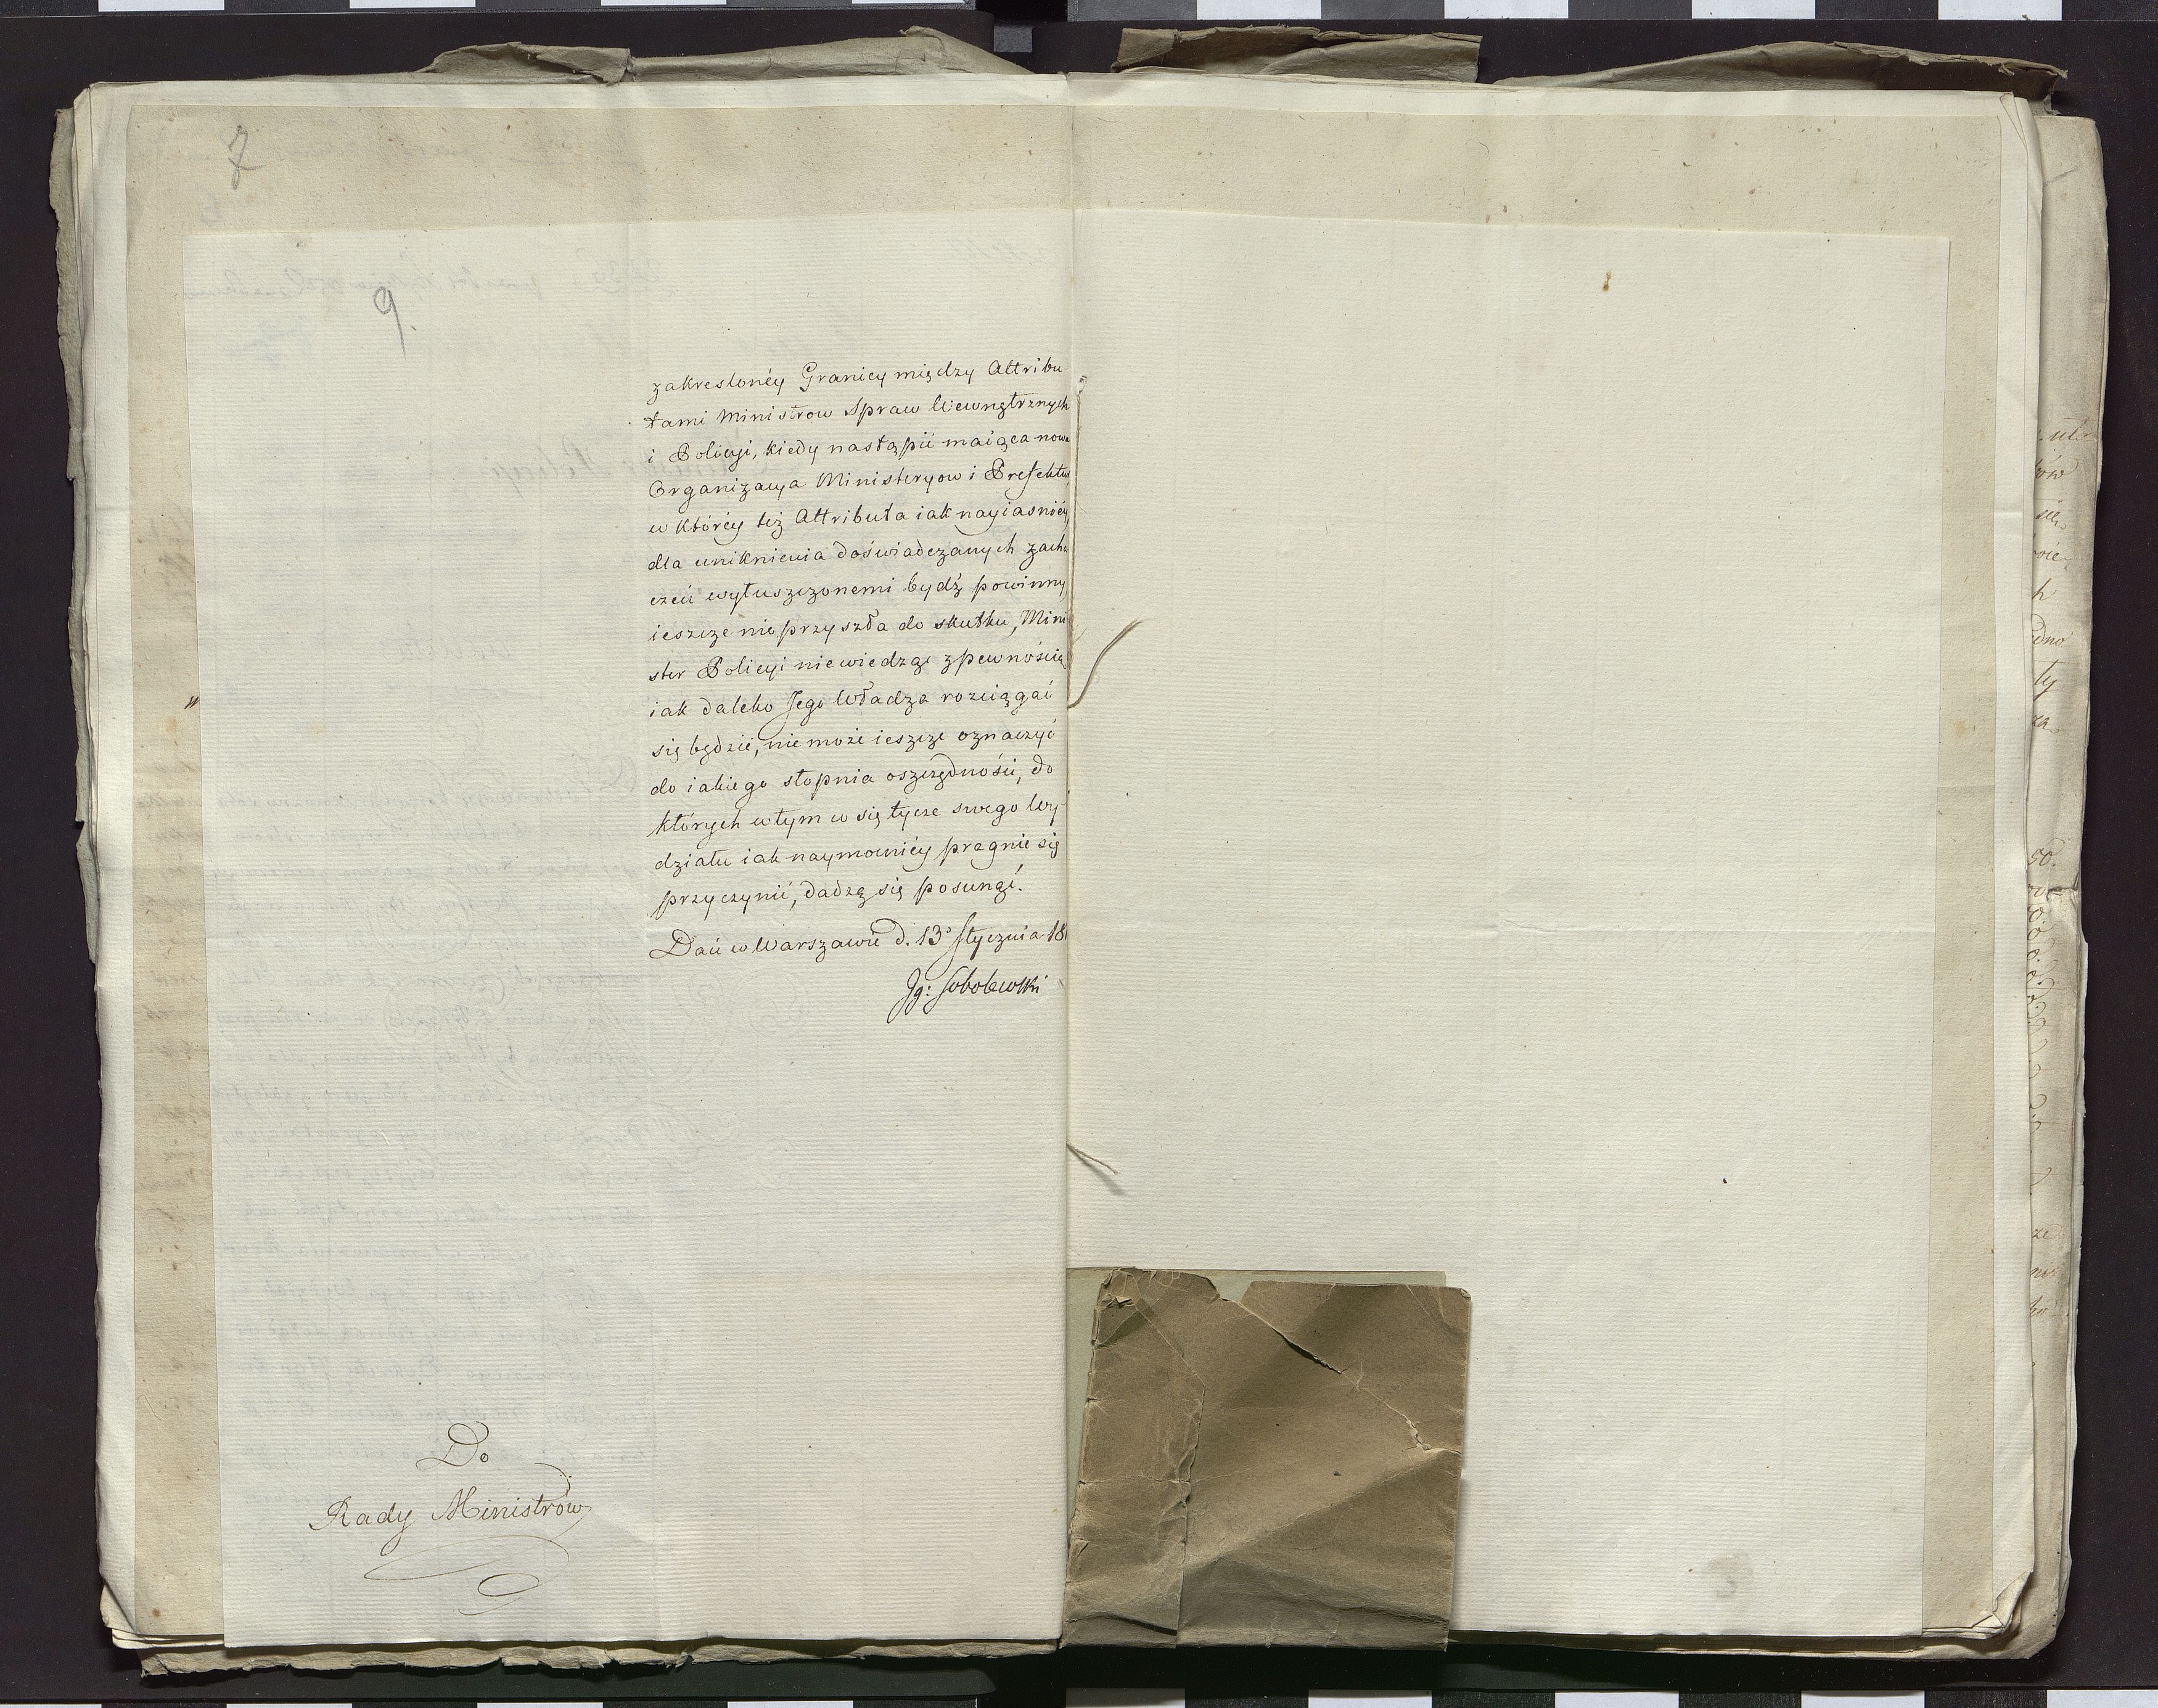 7
9.
zakresloney Granicy między Attribu
tami Ministrow Spraw Wewnętrznych
i Policyi, kiedy nastąpić maiąca nowa
Organizacya Ministeryow i Prefektur
w któréy też Attributa iak nayiasniéy,
dla uniknienia doświadczanych zacho
czeń wyłuszczonemi bydź powinny,
ieszcze nie przyszła do skutku, Mini
ster Policyi nie wiedząc z pewnością
iak daleko Jego Władza rozciągać
się będzie, nie może ieszcze oznaczyć
do iakiego stopnia oszczędności, do
których w tym co się tycze swego Wy-
działu iak naymocniéy pragnie się
przyczynić, dadzą się posunąć.
Dań w Warszawie d. 13 Stycznia 18
Ig: Sobolewski
Do
Rady Ministrów